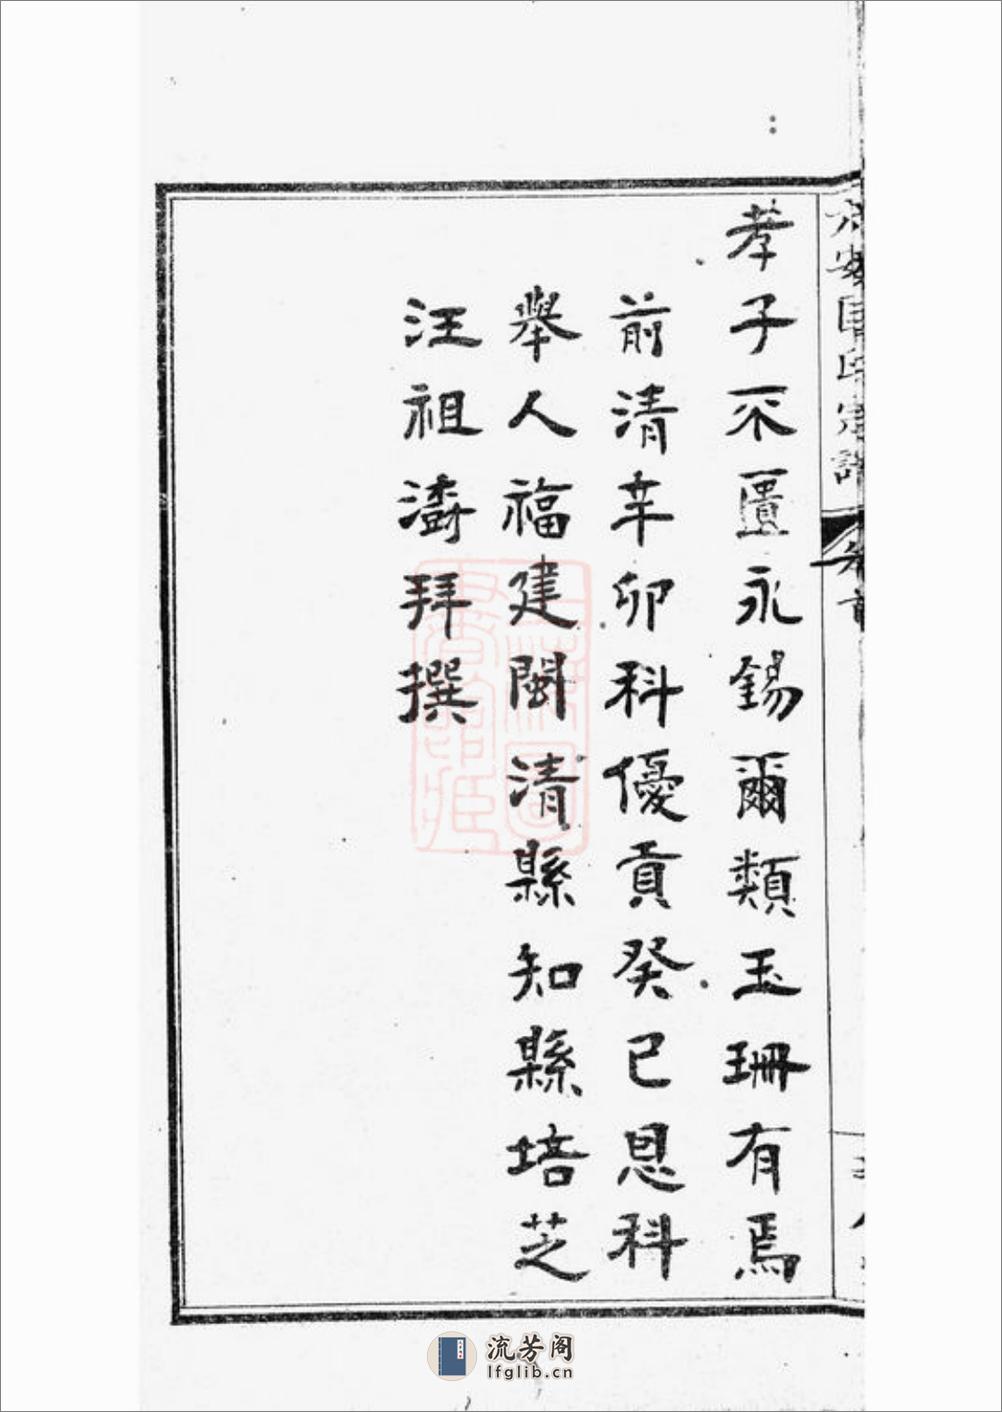 孝子不匱永錫爾類玉珊有焉
前清辛卯科優貢癸巳恩科
舉人福建閩清縣知縣培芝
汪祖濤拜撰
六安
氏宗譜
卷首
流芳阁
lfglib.cn